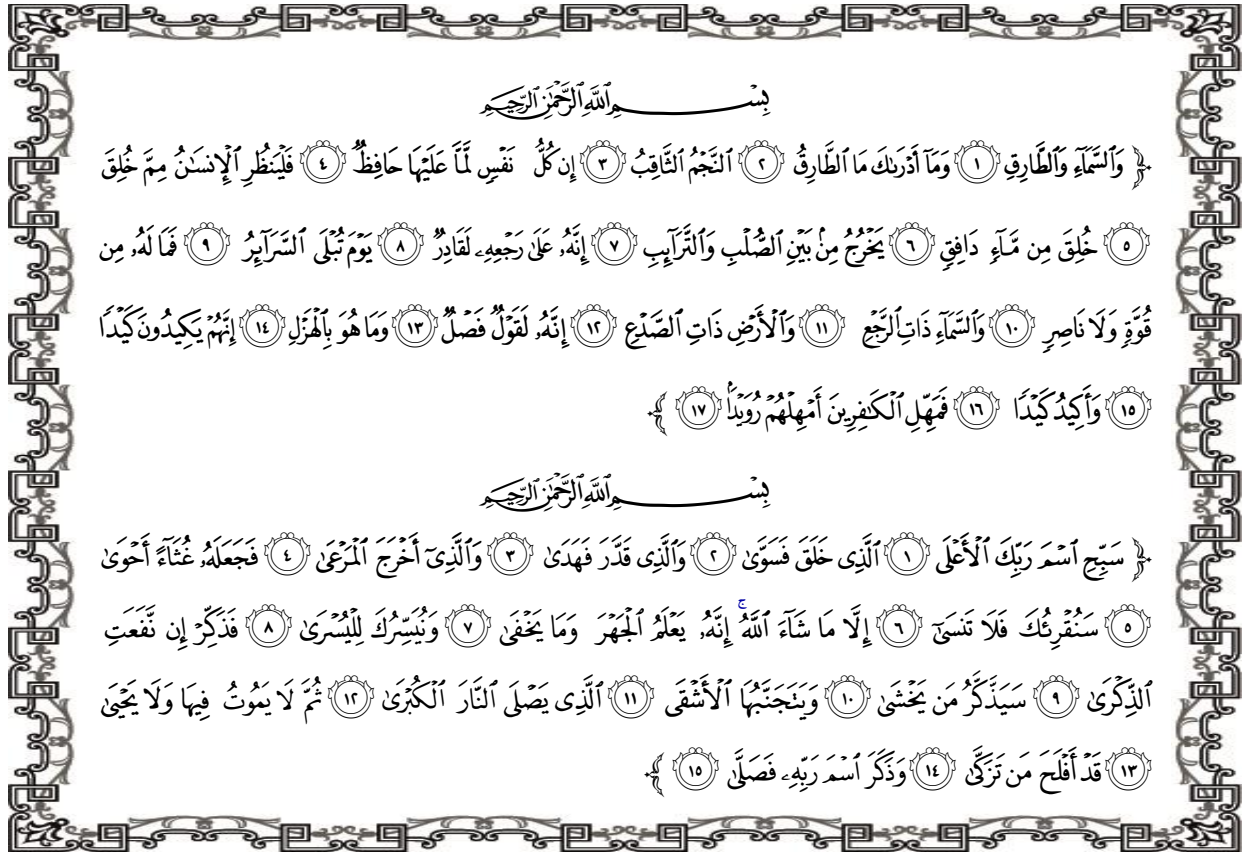 بِسْمِ ٱللَّهِ ٱلرَّحْمَٰنِ ٱلرَّحِيمِ
﴿ وَٱلسَّمَآءِ وَٱلطَّارِقِ ١ وَمَآ أَدْرَىٰكَ مَا ٱلطَّارِقُ ٢ ٱلنَّجْمُ ٱلثَّاقِبُ ٣ إِن كُلُّ نَفْسٍ لَّمَّا عَلَيْهَا حَافِظٌ ٤ فَلْيَنظُرِ ٱلْإِنسَٰنُ مِمَّ خُلِقَ
٥ خُلِقَ مِن مَّآءٍ دَافِقٍ ٦ يَخْرُجُ مِنۢ بَيْنِ ٱلصُّلْبِ وَٱلتَّرَآئِبِ ٧ إِنَّهُۥ عَلَىٰ رَجْعِهِۦ لَقَادِرٌ ٨ يَوْمَ تُبْلَى ٱلسَّرَآئِرُ ٩ فَمَا لَهُۥ مِن
قُوَّةٍ وَلَا نَاصِرٍ ١٠ وَٱلسَّمَآءِ ذَاتِ ٱلرَّجْعِ ١١ وَٱلْأَرْضِ ذَاتِ ٱلصَّدْعِ ١٢ إِنَّهُۥ لَقَوْلٌ فَصْلٌ ١٣ وَمَا هُوَ بِٱلْهَزْلِ ١٤ إِنَّهُمْ يَكِيدُونَ كَيْدًا
١٥ وَأَكِيدُ كَيْدًا ١٦ فَمَهِّلِ ٱلْكَٰفِرِينَ أَمْهِلْهُمْ رُوَيْدًۢا ١٧ ﴾
بِسْمِ ٱللَّهِ ٱلرَّحْمَٰنِ ٱلرَّحِيمِ
﴿ سَبِّحِ ٱسْمَ رَبِّكَ ٱلْأَعْلَى ١ ٱلَّذِى خَلَقَ فَسَوَّىٰ ٢ وَٱلَّذِى قَدَّرَ فَهَدَىٰ ٣ وَٱلَّذِىٓ أَخْرَجَ ٱلْمَرْعَىٰ ٤ فَجَعَلَهُۥ غُثَآءً أَحْوَىٰ
٥ سَنُقْرِئُكَ فَلَا تَنسَىٰٓ ٦ إِلَّا مَا شَآءَ ٱللَّهُ ۚ إِنَّهُۥ يَعْلَمُ ٱلْجَهْرَ وَمَا يَخْفَىٰ ٧ وَنُيَسِّرُكَ لِلْيُسْرَىٰ ٨ فَذَكِّرْ إِن نَّفَعَتِ
ٱلذِّكْرَىٰ ٩ سَيَذَّكَّرُ مَن يَخْشَىٰ ١٠ وَيَتَجَنَّبُهَا ٱلْأَشْقَى ١١ ٱلَّذِى يَصْلَى ٱلنَّارَ ٱلْكُبْرَىٰ ١٢ ثُمَّ لَا يَمُوتُ فِيهَا وَلَا يَحْيَىٰ
١٣ قَدْ أَفْلَحَ مَن تَزَكَّىٰ ١٤ وَذَكَرَ ٱسْمَ رَبِّهِۦ فَصَلَّىٰ ١٥ ﴾